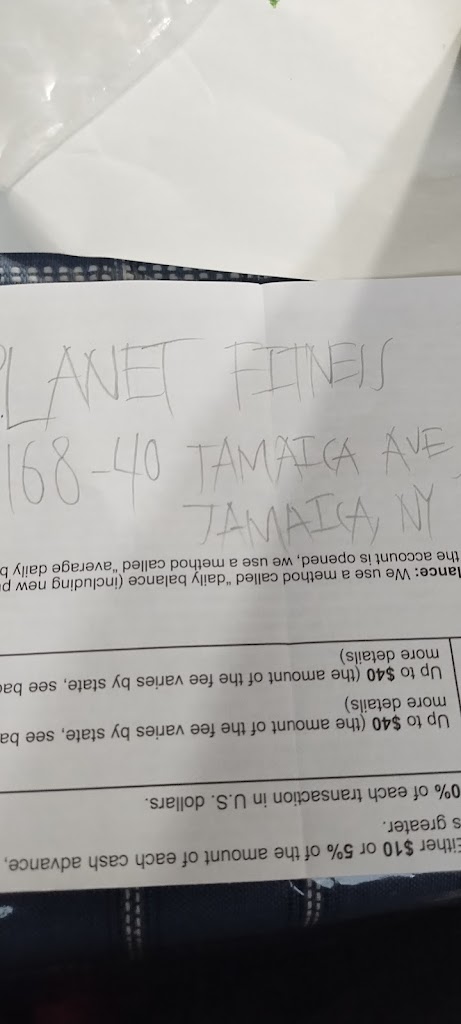 PLANET FITNESS
168-40 JAMAICA AVE
JAMAICA, NY
Either $10 or 5% of the amount of each cash advance,
s greater.
0% of each transaction in U.S. dollars.
Up to $40 (the amount of the fee varies by state, see ba
more details)
Up to $40 (the amount of the fee varies by state, see bac
more details)
lance: We use a method called "daily balance (including new p
the account is opened, we use a method called "average daily b